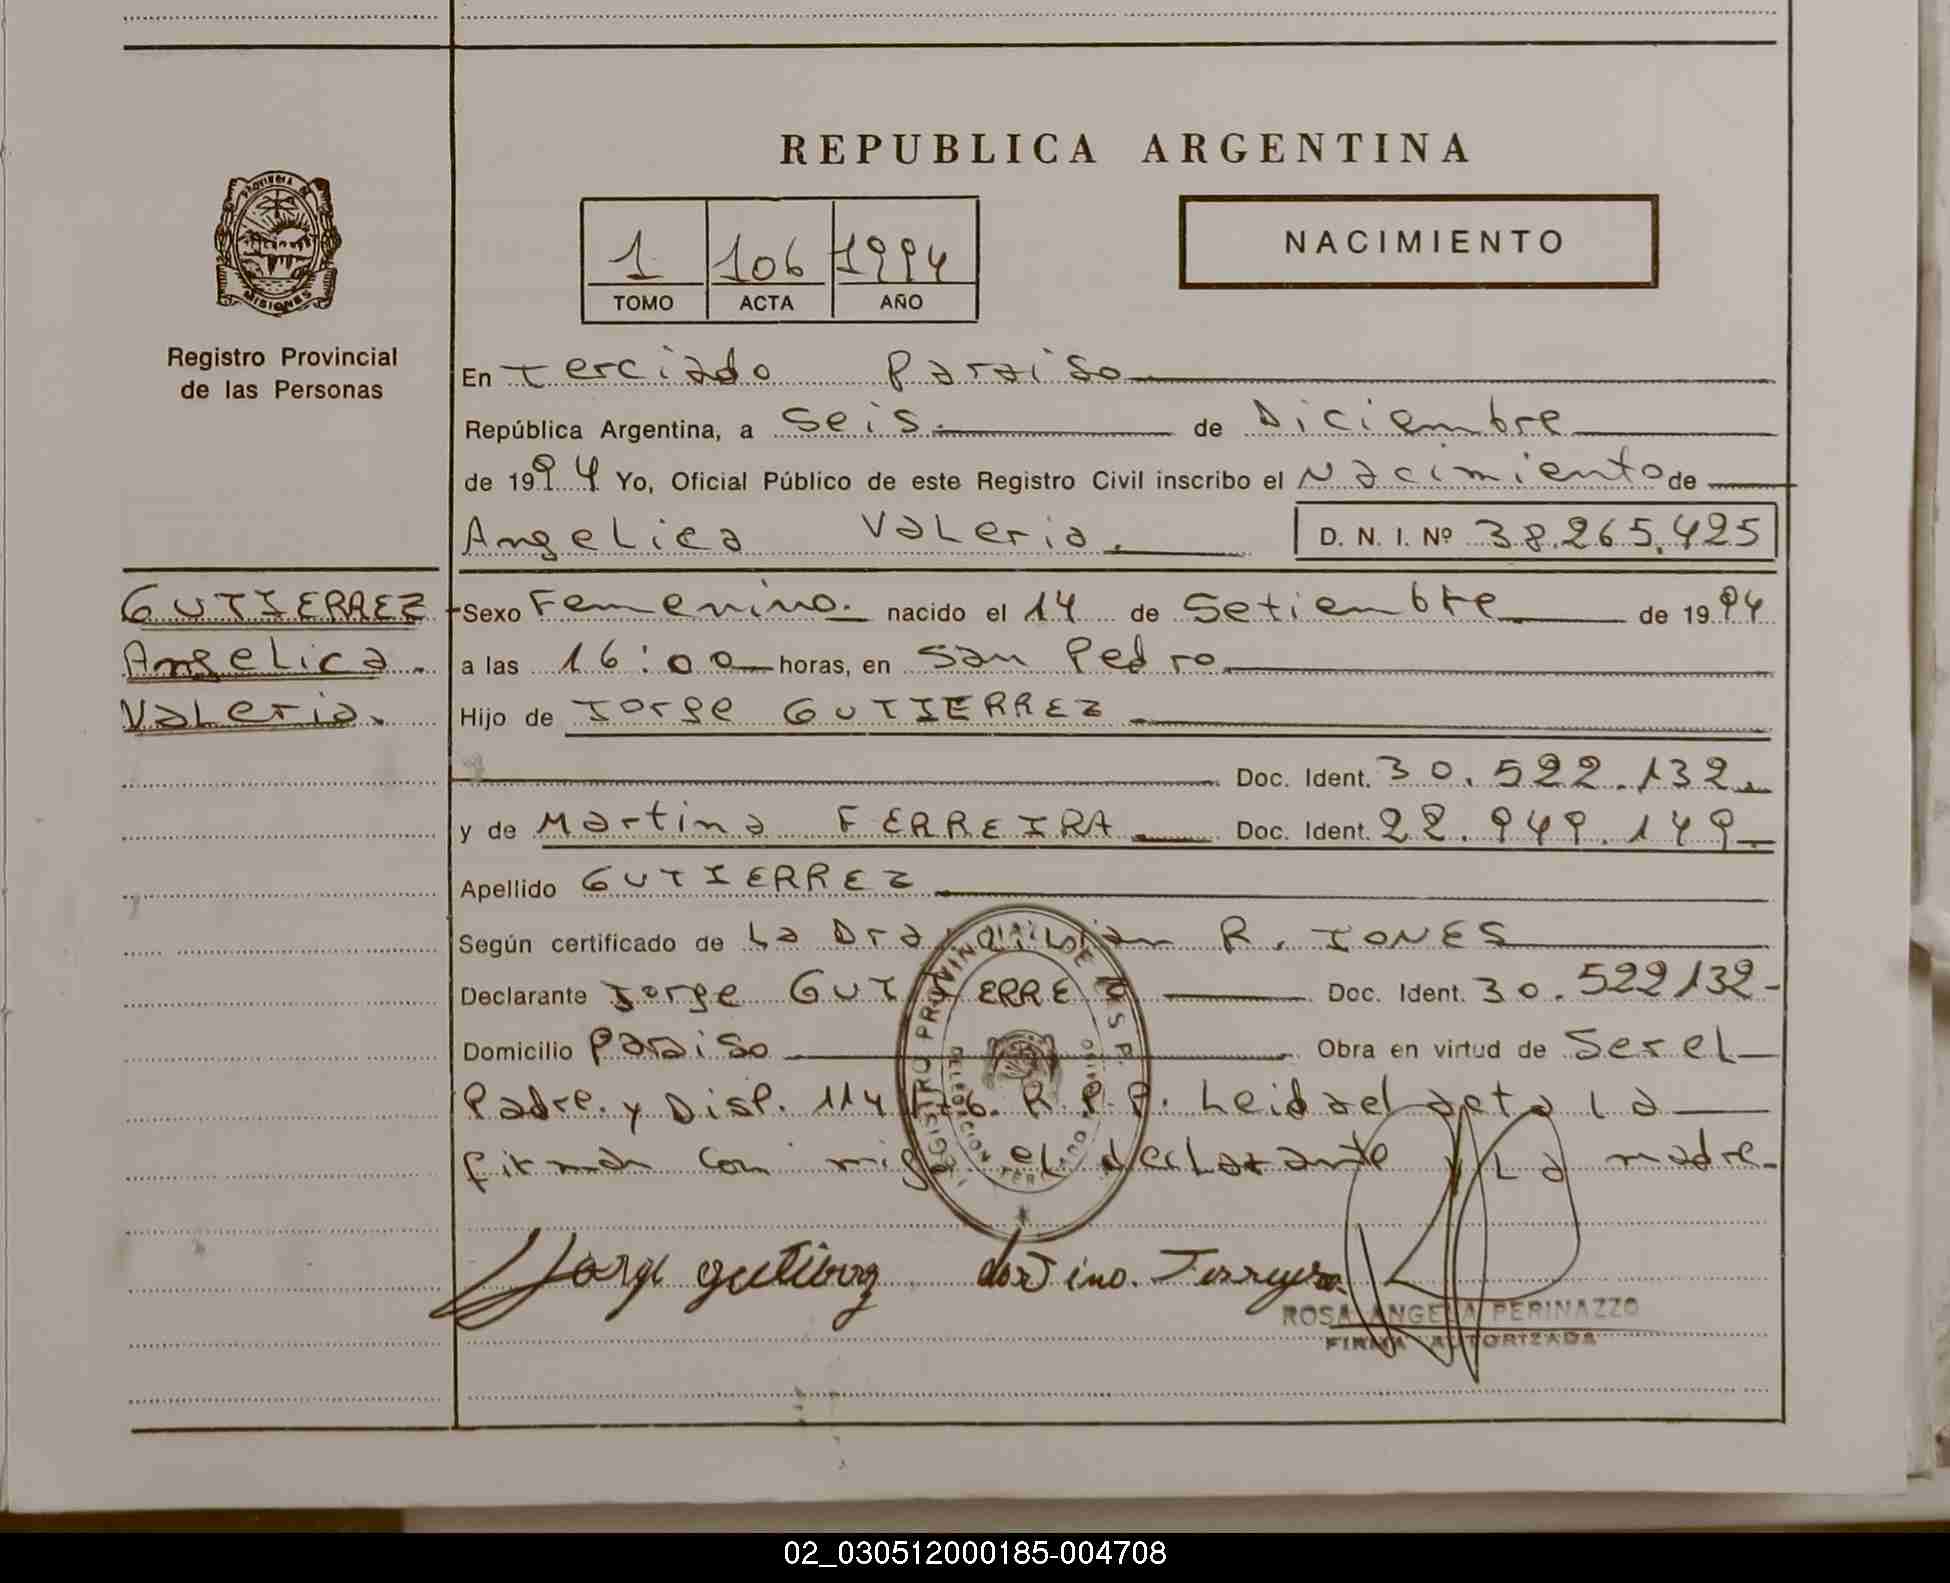 REPUBLICA ARGENTINA
PROVINCIA DE
MISIONES
Registro Provincial
de las Personas
1 106 1994
TOMO ACTA AÑO
NACIMIENTO
En Terciado Paraiso
República Argentina, a Seis. de Diciembre
de 1994 Yo, Oficial Público de este Registro Civil inscribo el Nacimiento de
Angelica Valeria. D. N. I. Nº 38.265.425
GUTIERREZ
Angelica
Valeria.
Sexo Femenino. nacido el 14 de Setiembre de 1994
a las 16:00 horas, en San Pedro
Hijo de Jorge GUTIERREZ
Doc. Ident. 30.522.132.
y de Martina FERREIRA Doc. Ident. 22.949.149
Apellido GUTIERREZ
Según certificado de La Dra R. JONES
Declarante Jorge GUTIERREZ Doc. Ident. 30.522132-
Domicilio Paraiso Obra en virtud de Ser el
Padre. y Disp. 114 R.P.P. Leida el acta La
firman con migo el declarante y La madre-
Jorge gutierrez
ROSA ANGELA PERINAZZO
FIRMA AUTORIZADA
REGISTRO PROVINCIAL DE LAS P.
02_030512000185-004708